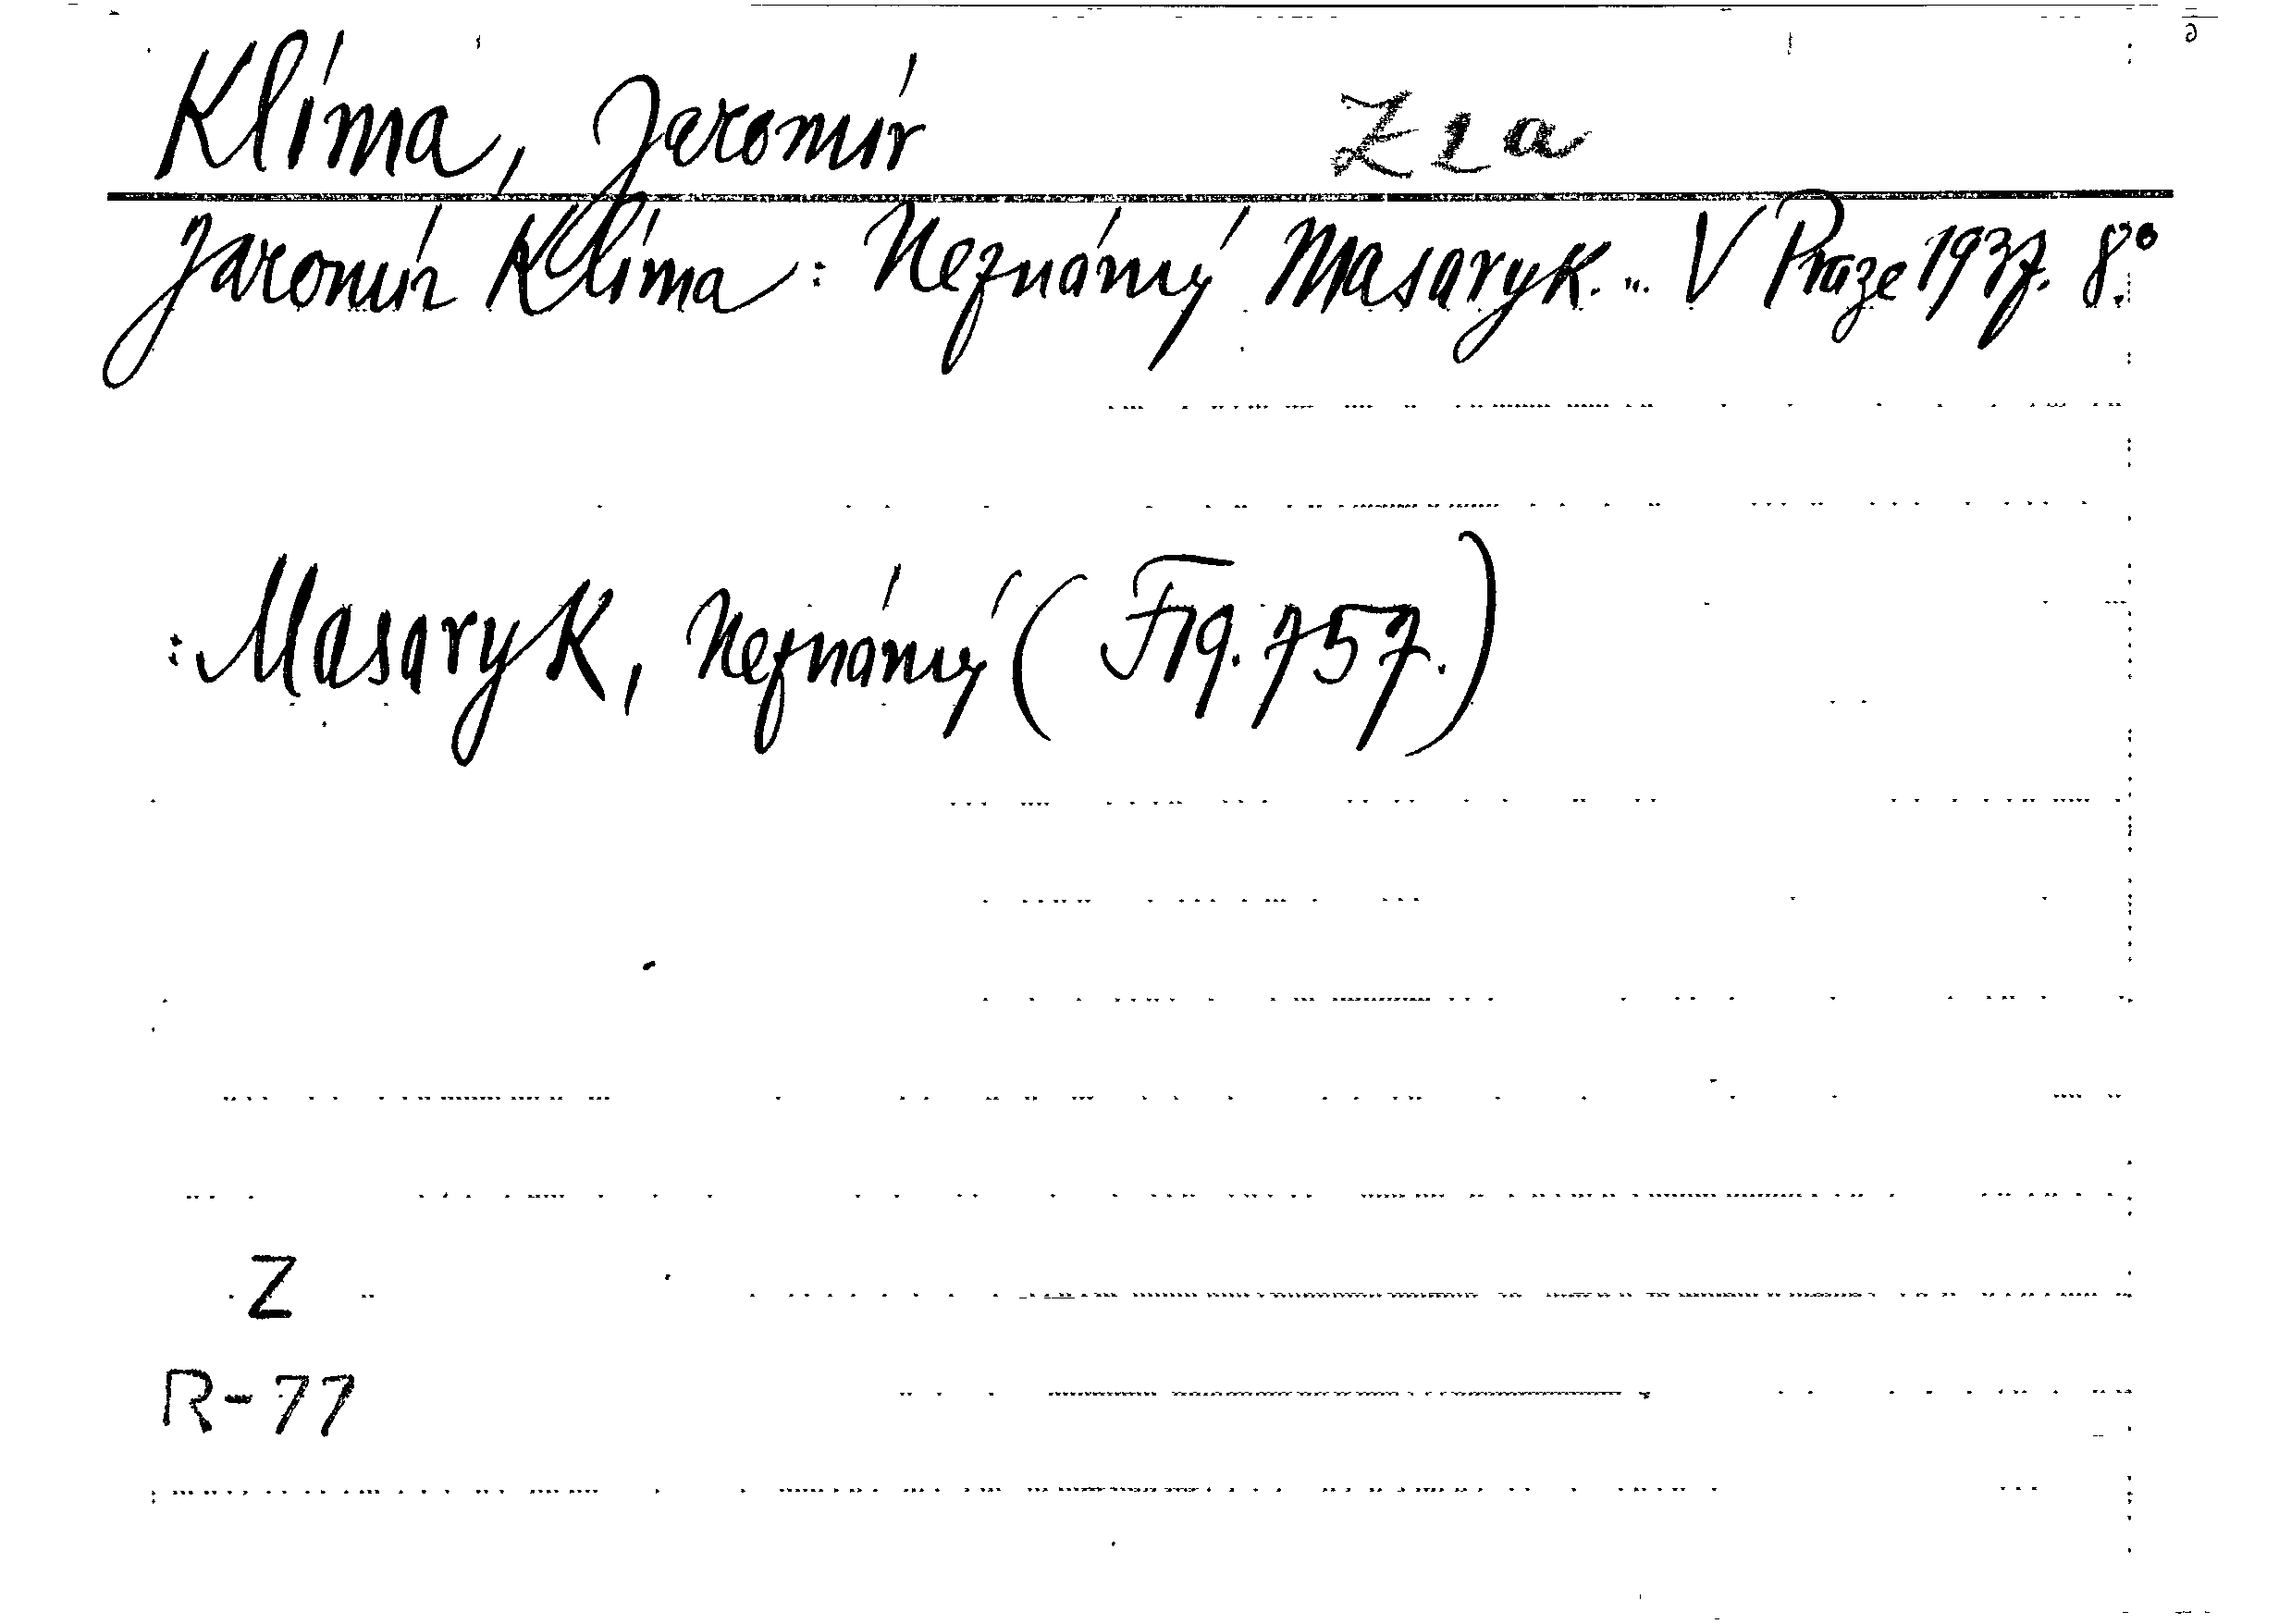 Klíma, Jaromír Z 2 a
Jaromír Klíma: Neznámý Masaryk... V Praze 1937. 8°.
: Masaryk, Neznámý (F19.757.)
Z
R-77